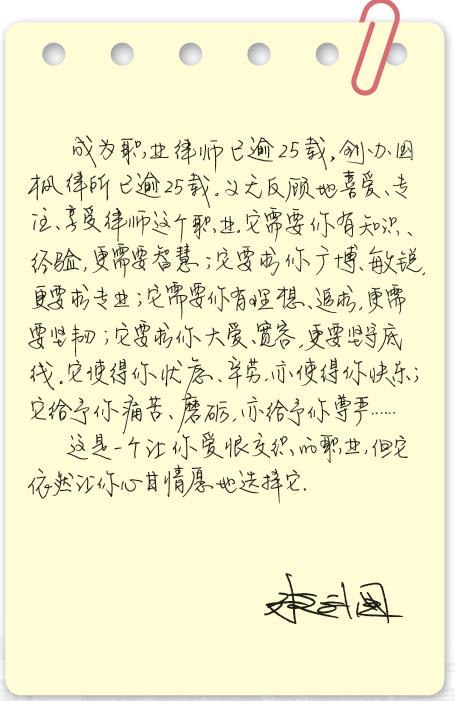 成为职业律师已逾25载，创办国
枫律所已逾25载。义无反顾地喜爱、专
注、享受律师这个职业。它需要你有知识、
经验，更需要智慧；它要求你广博、敏锐，
更要求专业；它需要你有理想、追求，更需
要坚韧；它要求你大爱、宽容，更要坚守底
线。它使得你忧虑、辛劳，亦使得你快乐；
它给予你痛苦、磨砺，亦给予你尊严……
这是一个让你爱恨交织的职业，但它
依然让你心甘情愿地选择它.